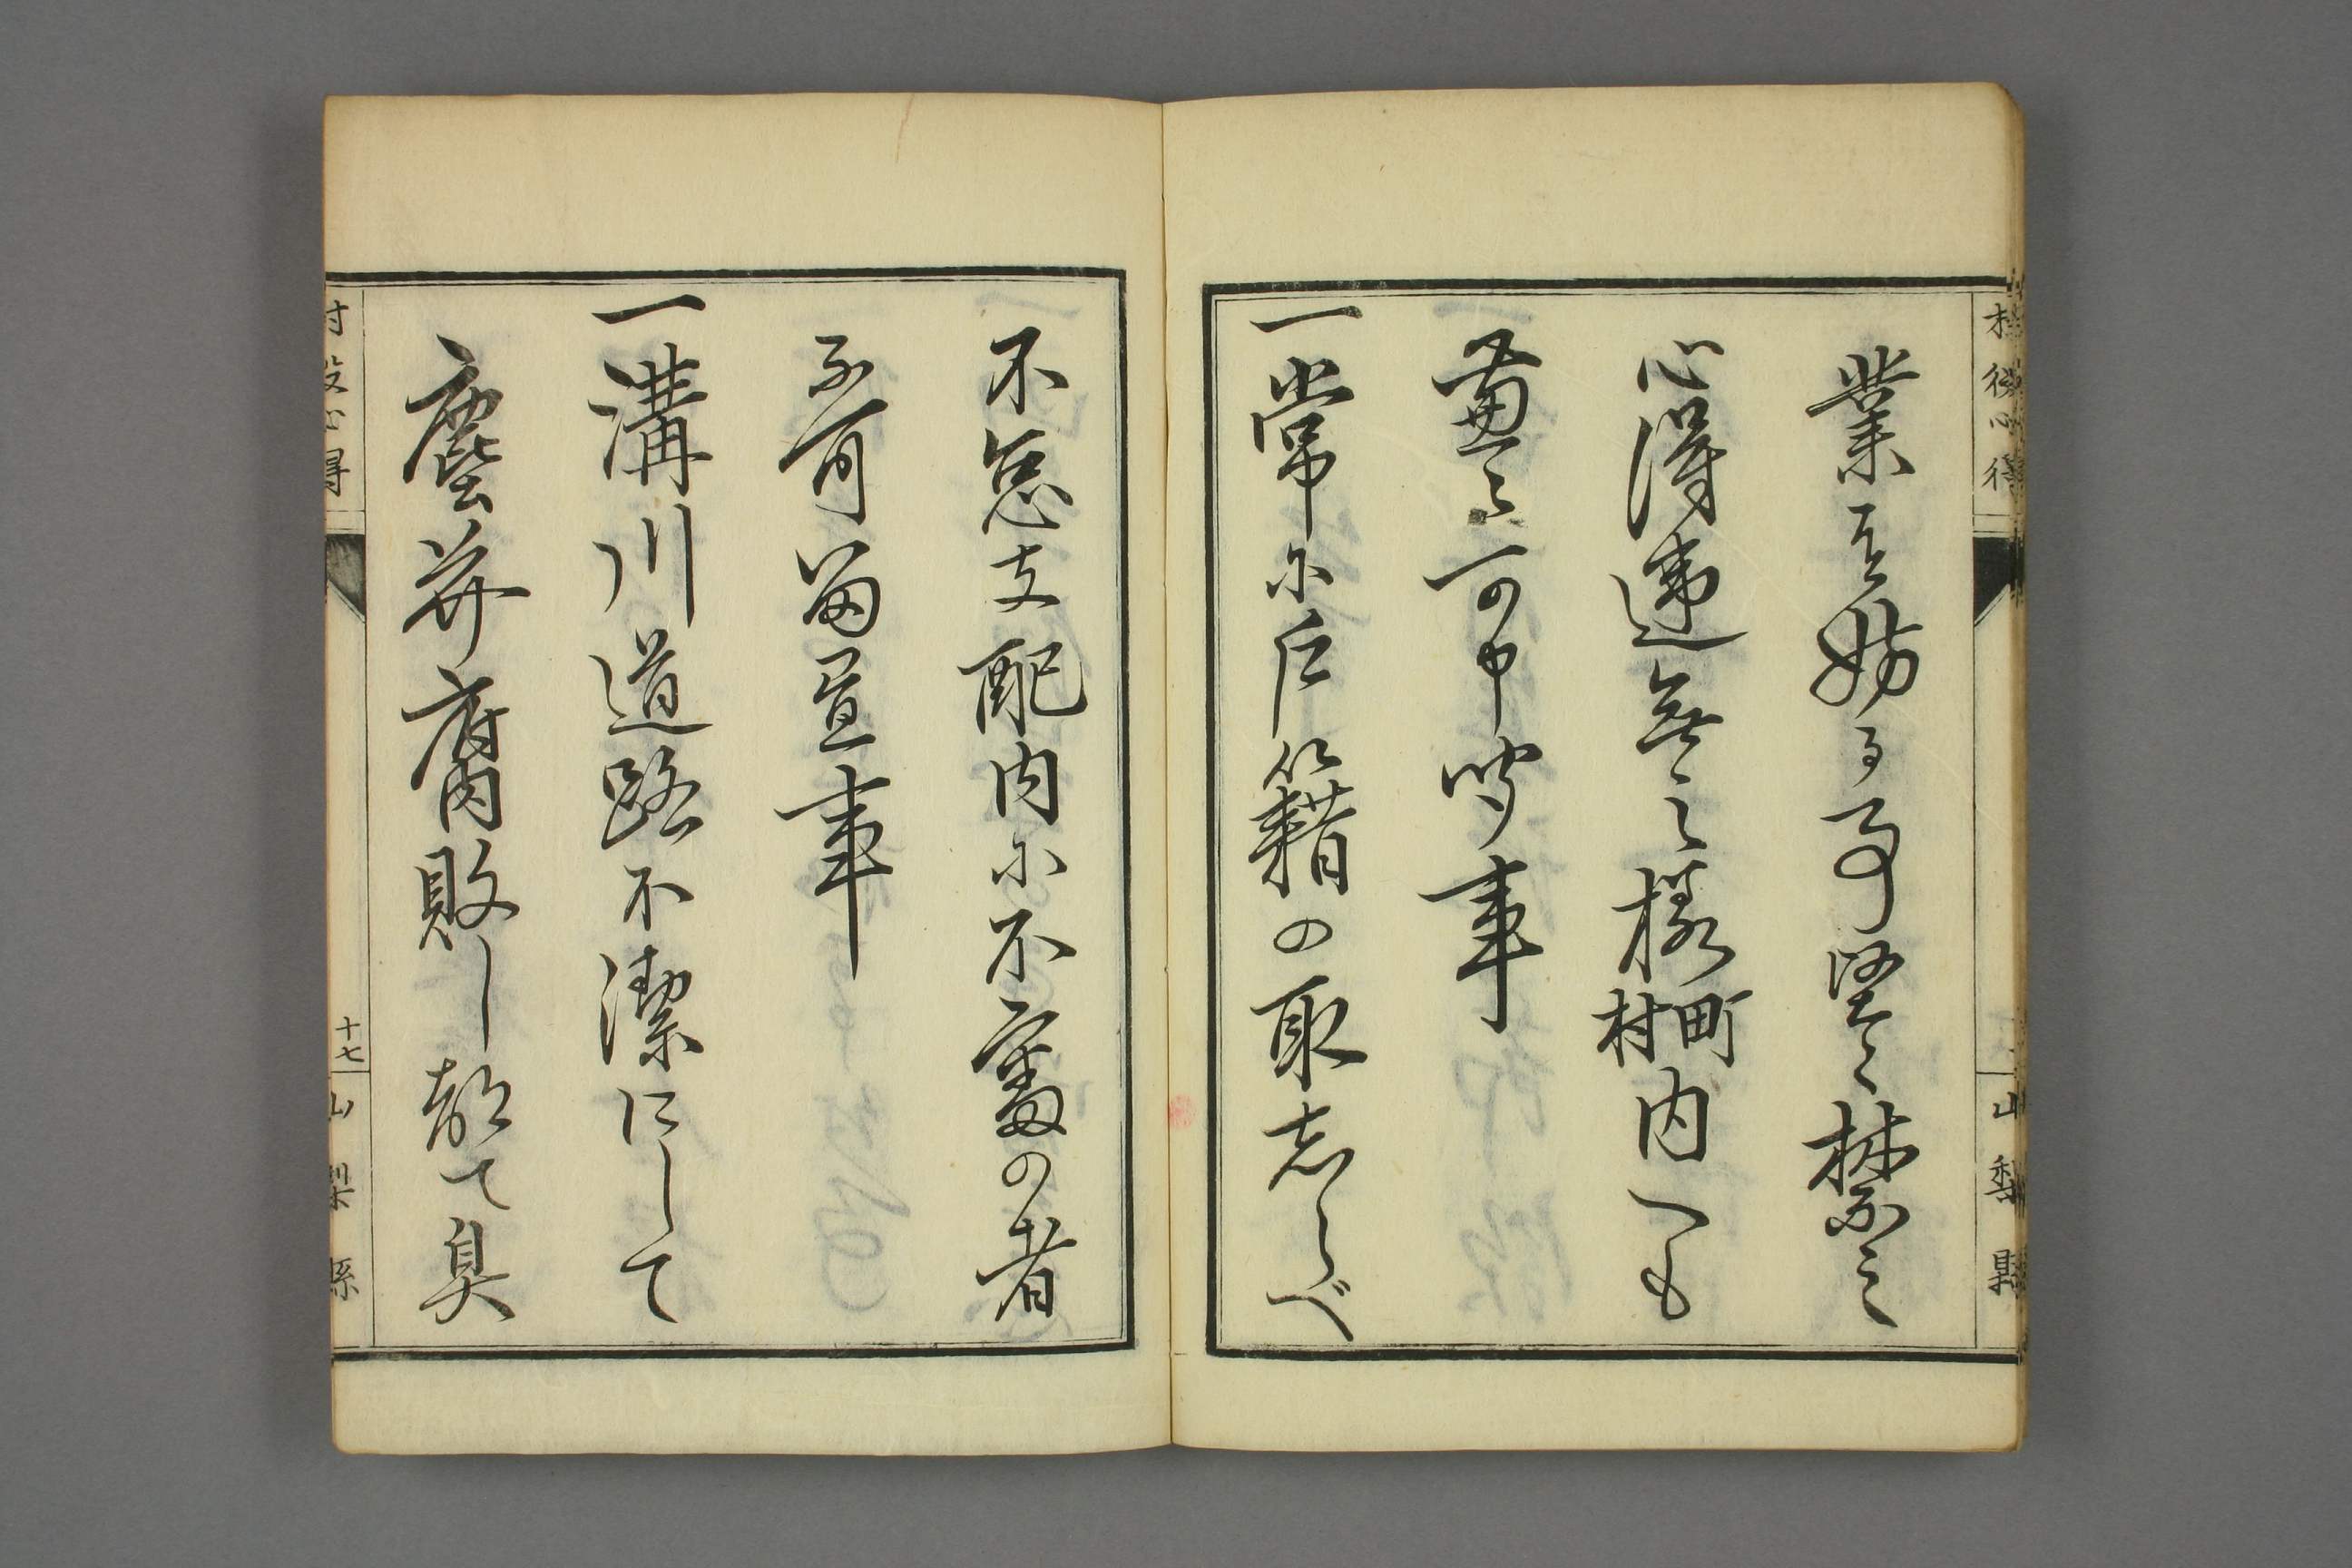 村役心得
山梨縣
業を妨る事堅く禁之
心得違無之様町村内へも
可申聞事
一常に戸籍の取志らべ
不怠支配内に不審の者
不可留置事
一溝川道路不潔にして
塵芥腐敗し都て臭
村役心得
十七
山梨縣